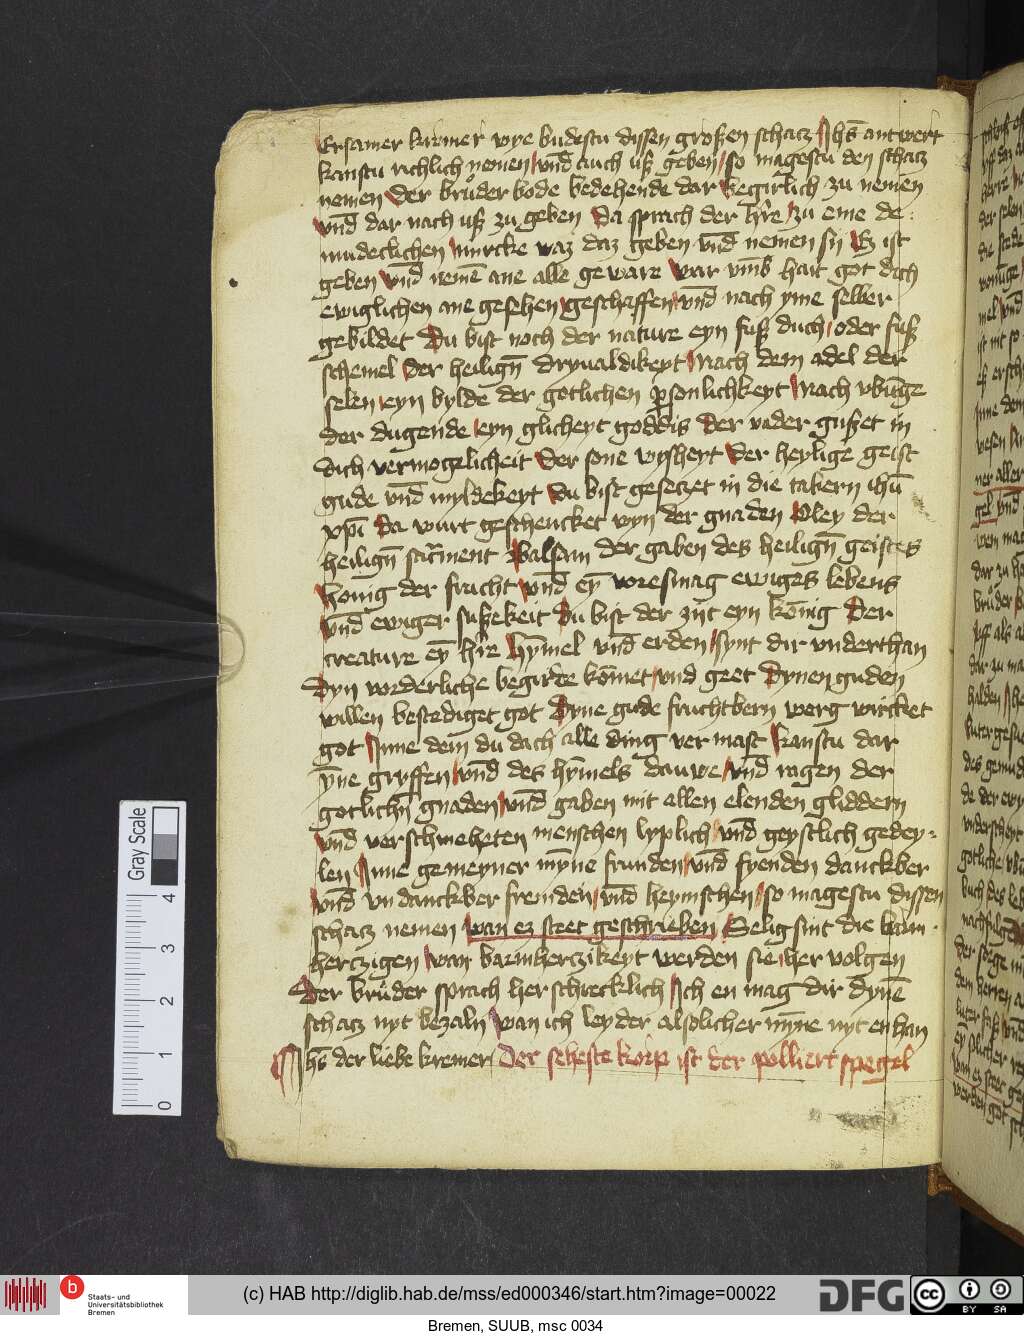 Ersamer kremer wye budestu dissen großen schacz Jhs̄ antwert
kanstu richlich nemen vnd̄ auch uß geben so magestu den schacz
nemen Der brůder bode bedehende dar begirlich zu nemen
vnd̄ dar nach uß zu geben Da sprach der hr̄e zu eme de:
mudeclichen mircke waz daz geben vnd̄ nemen sij Ez ist
geben vnd̄ nemē ane alle geware War vm̄b hait got dich
ewiglichen ane gesehen geschaffen vnd̄ nach yme selber
gebildet Du bist noch der nature eyn fuß duch oder fuß
schemel Der heilign̄ dryualdikeyt Nach dem adel der
selen eyn bylde der gotlichen ꝑsonlichkeyt Nach vbūge
der dugende eyn glicheyt goddis Der vader gußet in
dich vermogelicheit Der sone wysheyt Der heylige geist
gude vnd̄ myldekeyt Du bist gesetzet in die tabern ih̄u
xp̄i Da wurt geschencket wyn der gnaden Oley der
heilign̄ sacr̄ment Balsam der gaben des heilign̄ geistes
honig der frucht vnd̄ ey̅ voresmag ewiges lebens
vnd̄ ewiger sußekeit Du bist der zijt eyn kōnig Der
creature ey̅ hr̄e Hȳmel vnd̄ erden synt dir vnderthan
Dyn wederliche begirde kōmet vnd geet Dynen guden
willen bestediget got Dyne gude fruchtbern werg wircket
got Jnne dem du doch alle ding vermast Kanstu dar
ȳne gryffen vnd̄ des hȳmels dauwe vnd̄ ragen der
gotlichn̄ gnaden vnd̄ gaben mit allen elenden gliddern
vnd̄ verschmeheten menschen lyplich vnd̄ geystlich gedey=
len Jnne gemeyner mȳne frunden vnd̄ fyenden danckber
vnd̄ vndanckber fremden vnd̄ heymschen so magestu dissen
schacz nemen wan ez steet geschrieben Selig sint die barm
herczigen wan barmherczikeyt werden sie her volgen
Der brůder sprach her schrecklich Jch en mag dir dynē
schacz nyt bezaln Wan ich leyder alsolicher mȳne nyt en han
Jhs̄ der liebe kremer Der seheste korp ist der polliert spegel
Gray Scale
4
3
2
1
0
Staats- und
Universitätsbibliothek
Bremen
(c) HAB http://diglib.hab.de/mss/ed000346/start.htm?image=00022
DFG
cc
BY SA
Bremen, SUUB, msc 0034